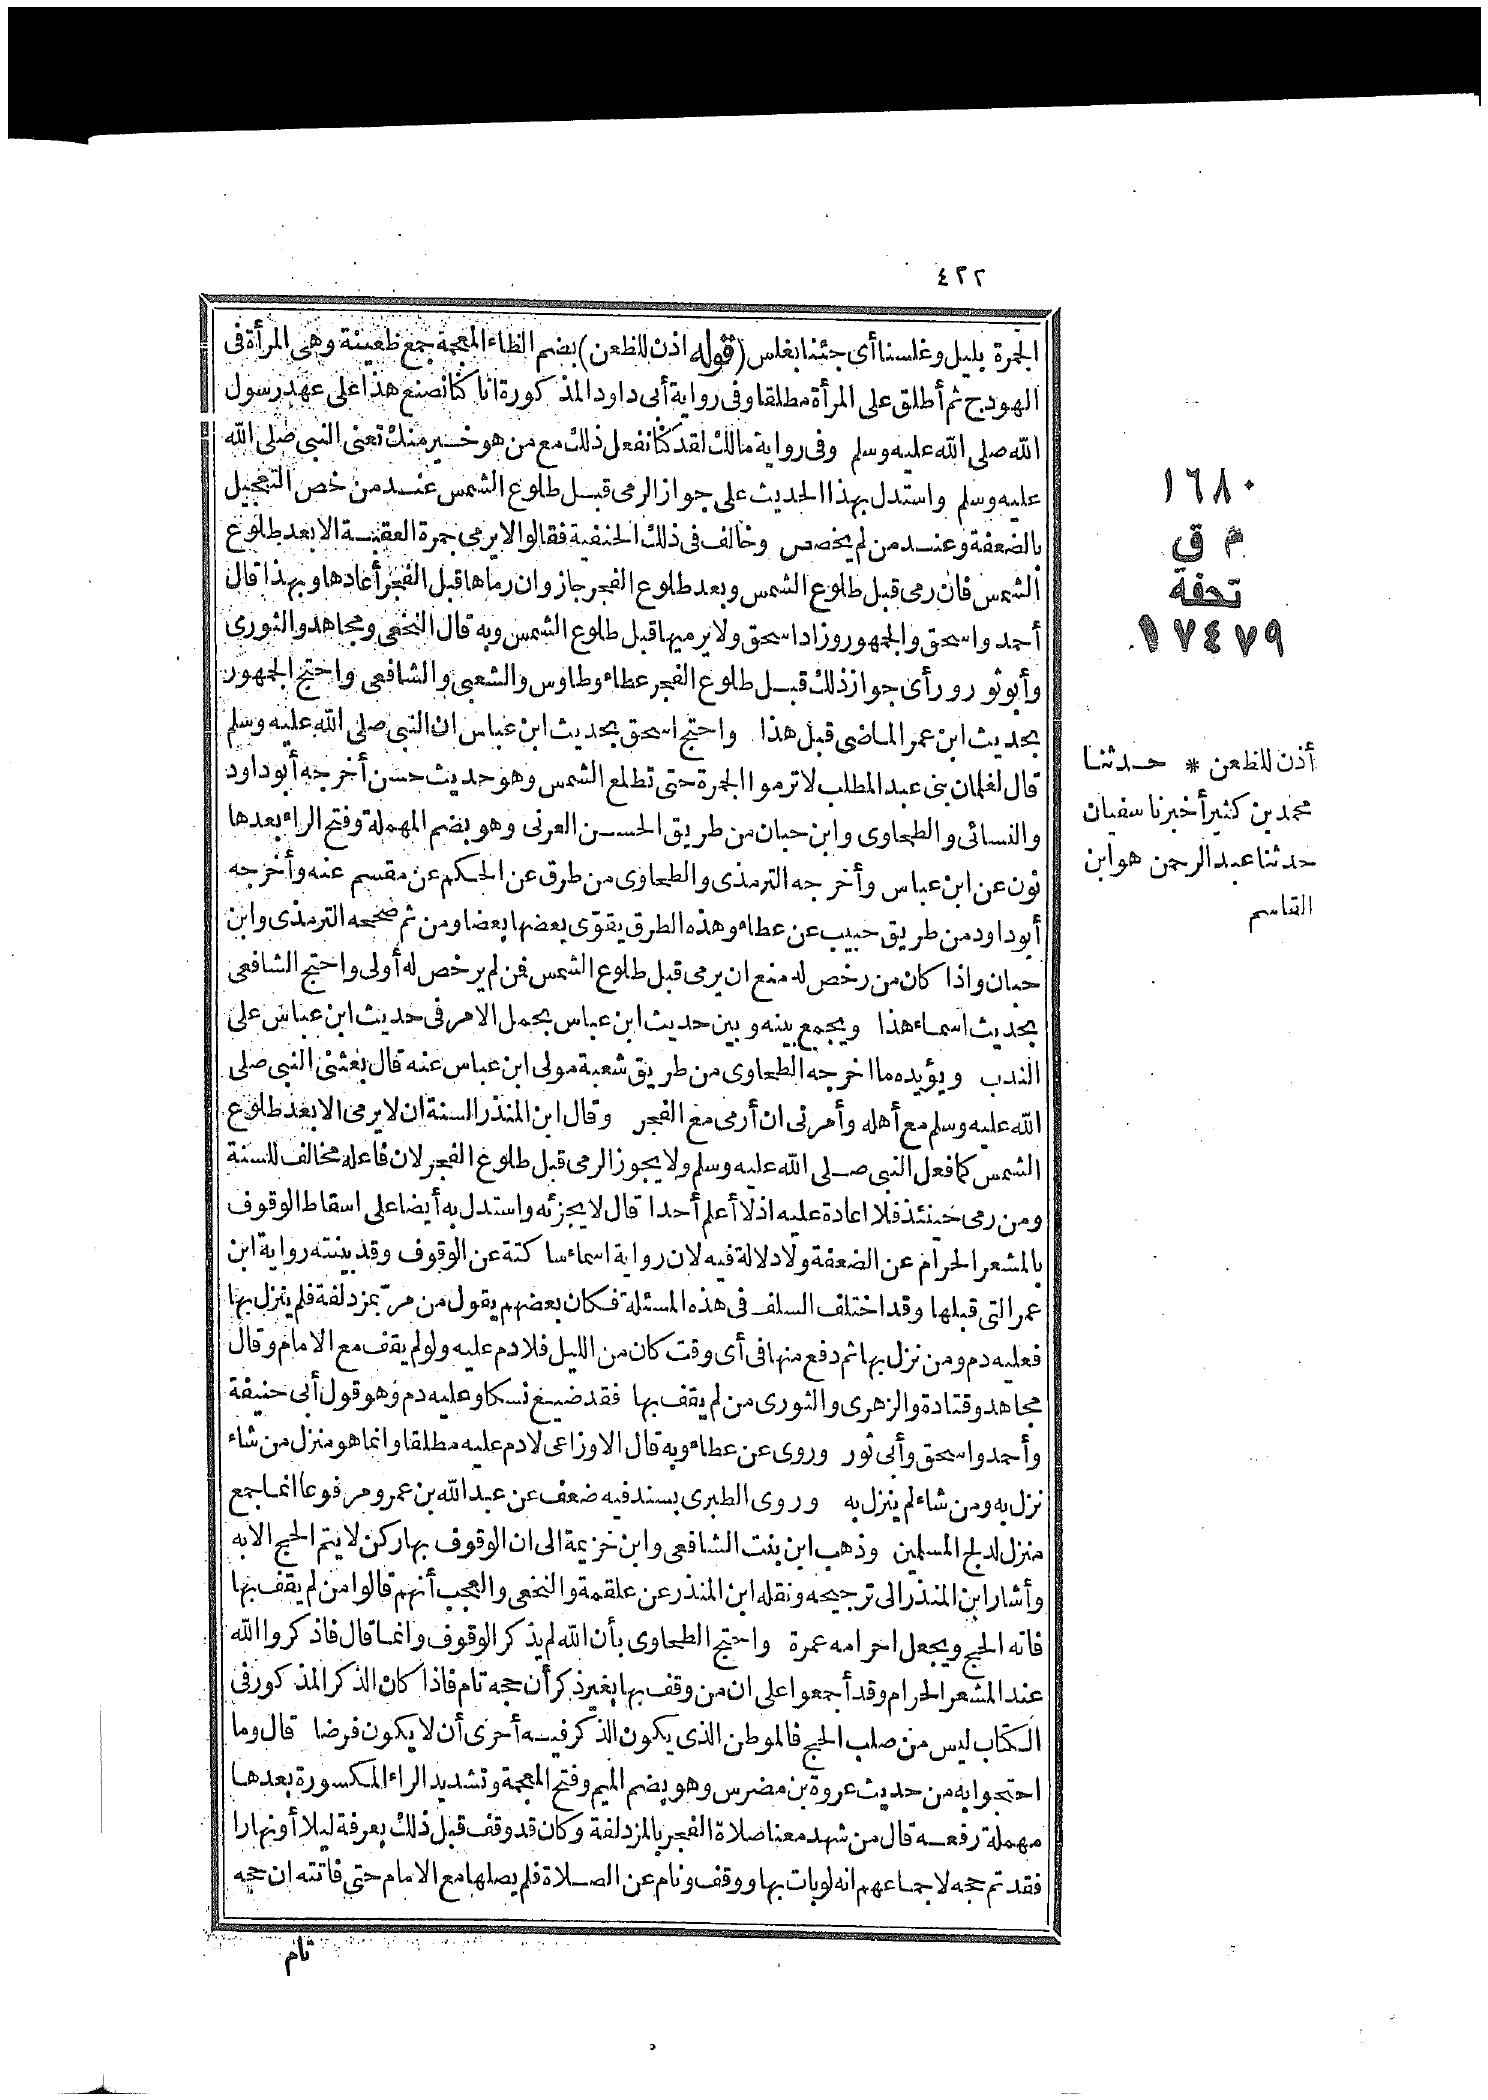 ٤٢٢
الجمرة بليل وغلسنا أى جئنا بغلس (قوله اذن للظعن) بضم الظاء المعجمة جمع ظعينة وهى المرأة فى
الهودج ثم أطلق على المرأة مطلقا وفى رواية أبى داود المذكورة انا كنا نصنع هذا على عهد رسول
الله صلى الله عليه وسلم وفى رواية مالك لقد كنا نفعل ذلك مع من هو خير منك تعنى النبى صلى الله
عليه وسلم واستدل بهذا الحديث على جواز الرمى قبل طلوع الشمس عند من خص التعجيل
بالضعفة وعند من لم يخصص وخالف فى ذلك الحنفية فقالوا لا يرمى جمرة العقبة الا بعد طلوع
الشمس فان رمى قبل طلوع الشمس وبعد طلوع الفجر جاز وان رماها قبل الفجر أعادها وبهذا قال
أحمد واسحق والجمهور وزاد اسحق ولا يرميها قبل طلوع الشمس وبه قال النخعى ومجاهد والثورى
وأبو ثور ورأى جواز ذلك قبل طلوع الفجر عطاء وطاوس والشعبى والشافعى واحتج الجمهور
بحديث ابن عمر الماضى قبل هذا واحتج اسحق بحديث ابن عباس ان النبى صلى الله عليه وسلم
قال لغلمان بنى عبد المطلب لا ترموا الجمرة حتى تطلع الشمس وهو حديث حسن أخرجه أبو داود
والنسائى والطحاوى وابن حبان من طريق الحسن العرنى وهو بضم المهملة وفتح الراء بعدها
نون عن ابن عباس وأخرجه الترمذى والطحاوى من طرق عن الحكم عن مقسم عنه وأخرجه
أبو داود من طريق حبيب عن عطاء وهذه الطرق يقوّى بعضها بعضا ومن ثم صححه الترمذى وابن
حبان واذا كان من رخص له منع ان يرمى قبل طلوع الشمس فمن لم يرخص له أولى واحتج الشافعى
بحديث اسماء هذا ويجمع بينه وبين حديث ابن عباس بحمل الامر فى حديث ابن عباس على
الندب ويؤيده ما اخرجه الطحاوى من طريق شعبة مولى ابن عباس عنه قال بعثنى النبى صلى
الله عليه وسلم مع أهله وأمرنى ان أرمى مع الفجر وقال ابن المنذر السنة ان لا يرمى الا بعد طلوع
الشمس كما فعل النبى صلى الله عليه وسلم ولا يجوز الرمى قبل طلوع الفجر لان فاعله مخالف للسنة
ومن رمى حينئذ فلا اعادة عليه اذ لا أعلم أحدا قال لا يجزئه واستدل به أيضا على اسقاط الوقوف
بالمشعر الحرام عن الضعفة ولا دلالة فيه لان رواية اسماء ساكتة عن الوقوف وقد بينته رواية ابن
عمر التى قبلها وقد اختلف السلف فى هذه المسئلة فكان بعضهم يقول من مرّ بمزدلفة فلم ينزل بها
فعليه دم ومن نزل بها ثم دفع منها فى أى وقت كان من الليل فلا دم عليه ولو لم يقف مع الامام وقال
مجاهد وقتادة والزهرى والثورى من لم يقف بها فقد ضيع نسكا وعليه دم وهو قول أبى حنيفة
وأحمد واسحق وأبى ثور وروى عن عطاء وبه قال الاوزاعى لا دم عليه مطلقا وانما هو منزل من شاء
نزل به ومن شاء لم ينزل به وروى الطبرى بسند فيه ضعف عن عبد الله بن عمرو مرفوعا انما جمع
منزل لدلج المسلمين وذهب ابن بنت الشافعى وابن خزيمة الى ان الوقوف بها ركن لا يتم الحج الا به
وأشار ابن المنذر الى ترجيحه ونقله ابن المنذر عن علقمة والنخعى والعجب أنهم قالوا من لم يقف بها
فاته الحج ويجعل احرامه عمرة واحتج الطحاوى بأن الله لم يذكر الوقوف وانما قال فاذكروا الله
عند المشعر الحرام وقد أجمعوا على ان من وقف بها بغير ذكر أن حجه تام فاذا كان الذكر المذكور فى
الكتاب ليس من صلب الحج فالموطن الذى يكون الذكر فيه أحرى أن لا يكون فرضا قال وما
احتجوا به من حديث عروة بن مضرس وهو بضم الميم وفتح المعجمة وتشديد الراء المكسورة بعدها
مهملة رفعه قال من شهد معنا صلاة الفجر بالمزدلفة وكان قد وقف قبل ذلك بعرفة ليلا أو نهارا
فقد تم حجه لاجماعهم انه لو بات بها ووقف ونام عن الصلاة فلم يصلها مع الامام حتى فاتته ان حجه
تام
١٦٨٠
م ق
تحفة
١٧٤٧٩
أذن للظعن * حدثنا
محمد بن كثير أخبرنا سفيان
حدثنا عبد الرحمن هو ابن
القاسم